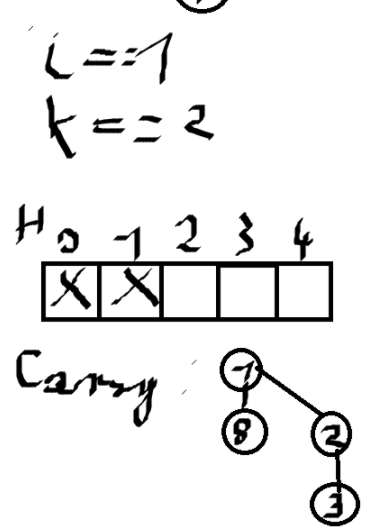 i == 1
k == 2
H 0 1 2 3 4
X X
Carry : 1
8 2
3